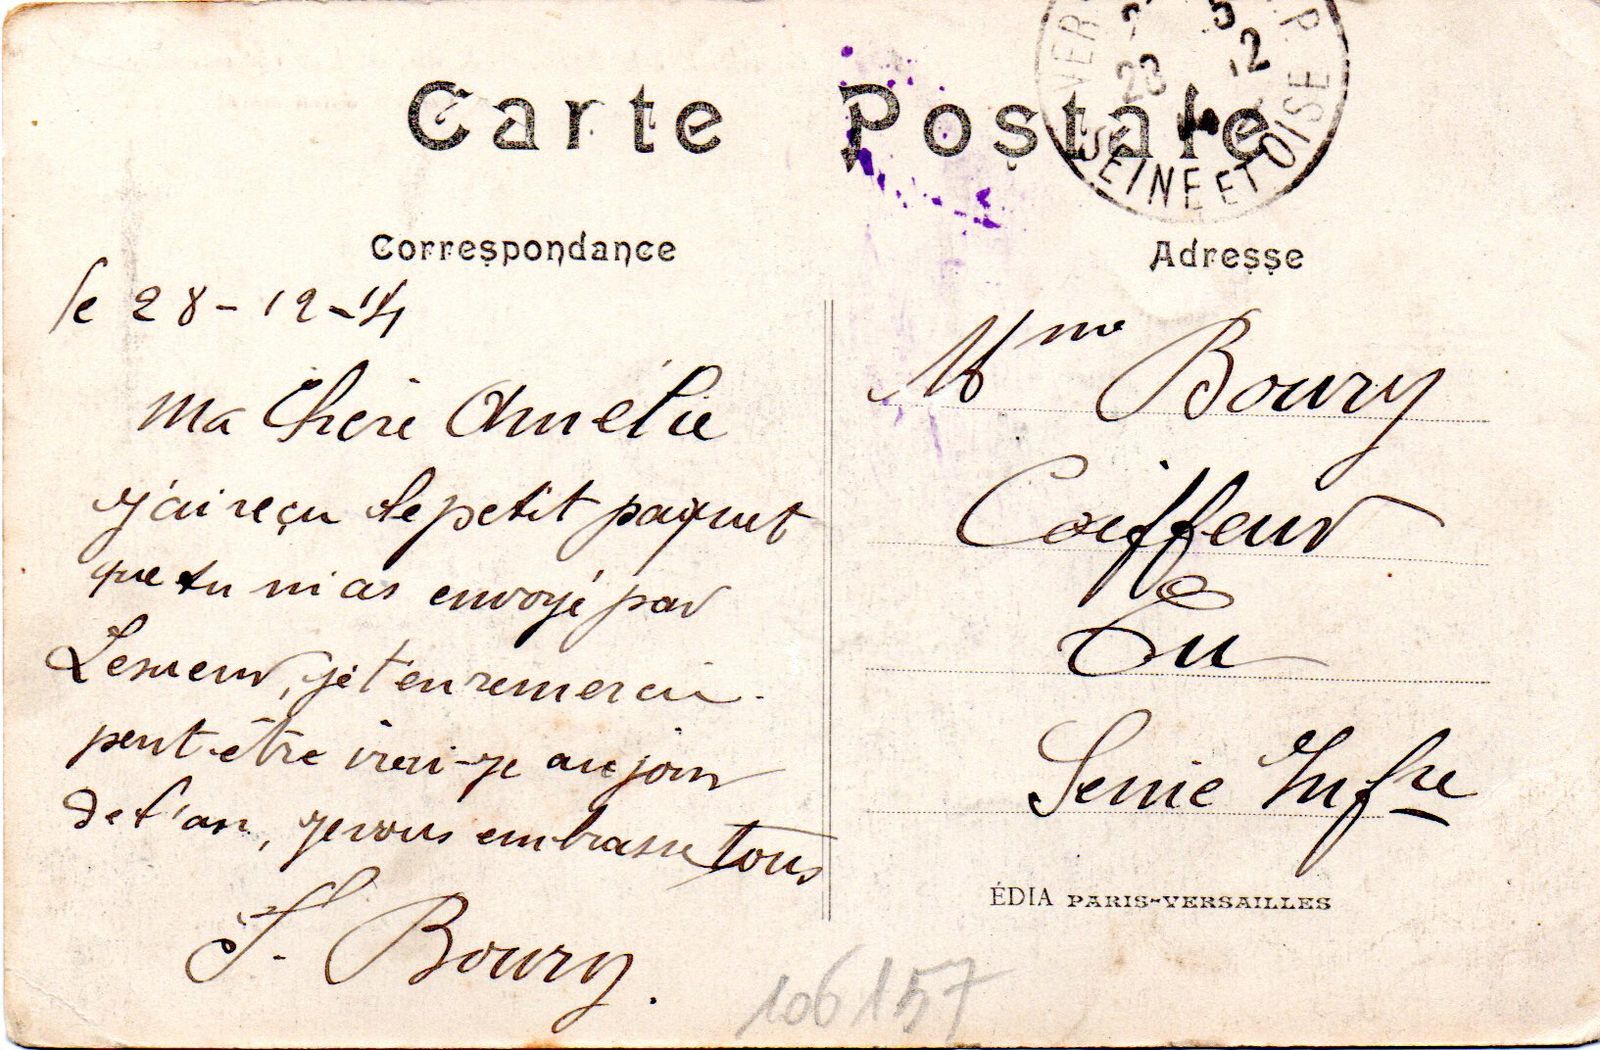 Carte Postale
Correspondance
Adresse
SEINE ET OISE
28 12
le 28-12-14
Ma Chère Amélie
j'ai reçu le petit paquet
que tu m'as envoyé par
Lesueur, je t'en remercie.
peut-être irai-je au jour
de l'an, je vous embrasse tous
J. Boury.
Mme Boury
Coiffeur
Eu
Seine Infre
ÉDIA PARIS-VERSAILLES
106157